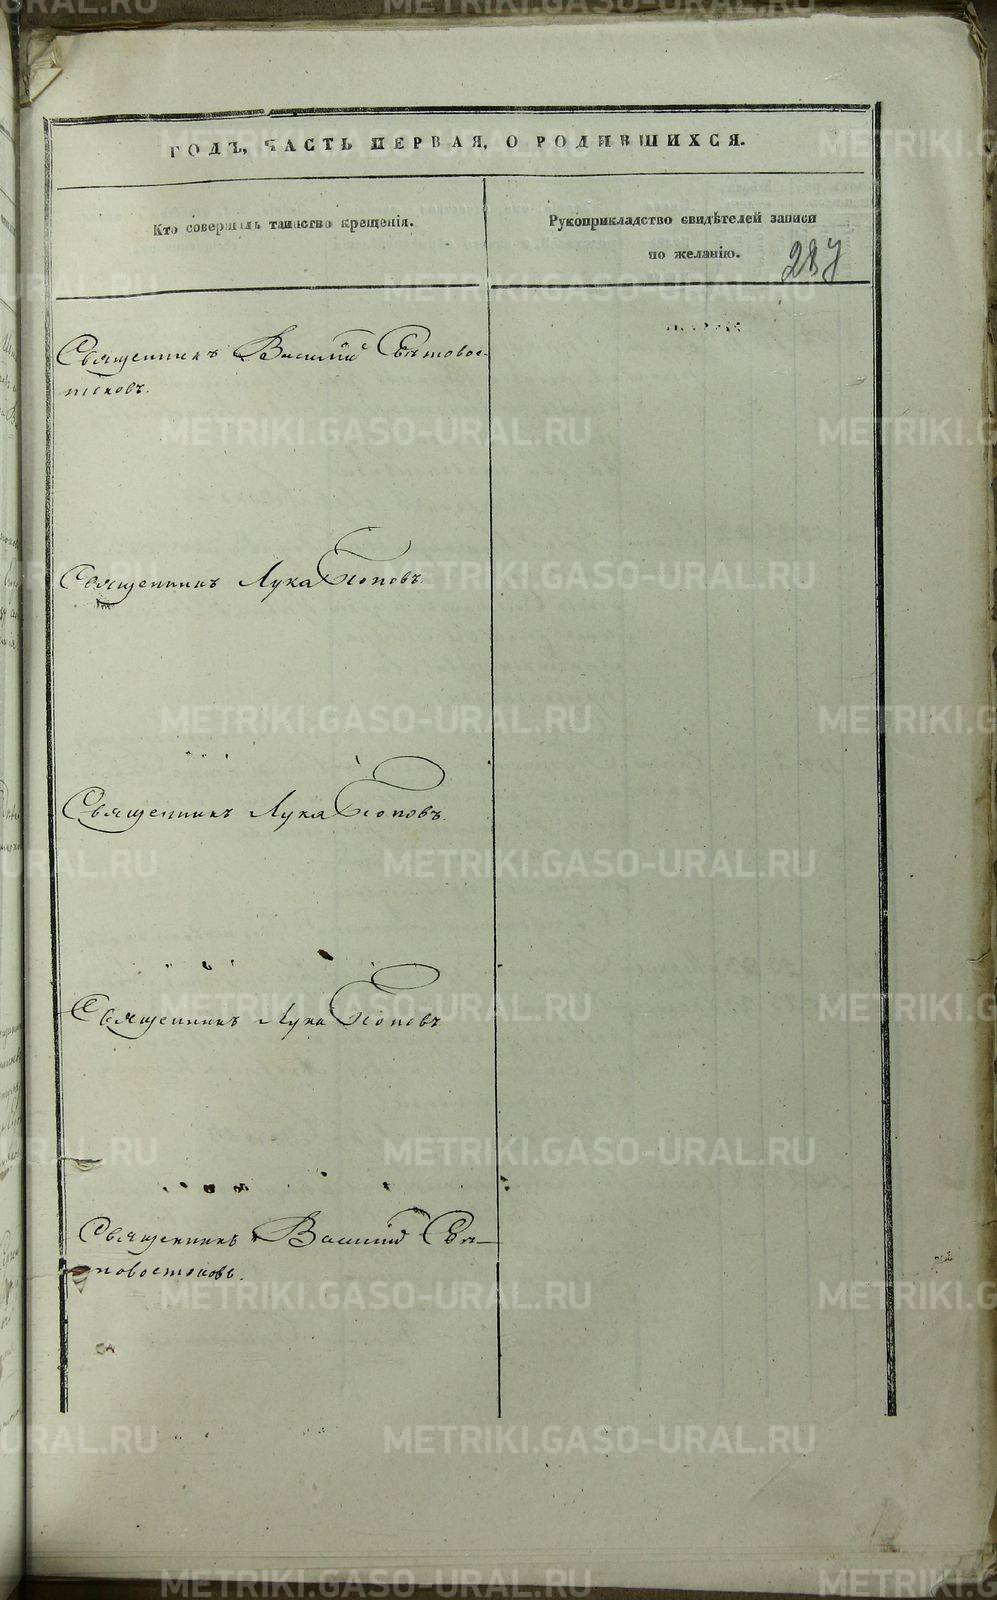 ГОДЪ, ЧАСТЬ ПЕРВАЯ, О РОДИВШИХСЯ.
Кто совершилъ таинство крещенія.
Рукоприкладство свидѣтелей записи
по желанію.
287
Священникъ Василій Свѣтовос-
токовъ.
Священникъ Лука Поповъ.
Священникъ Лука Поповъ.
Священникъ Лука Поповъ
Священникъ Василій Свѣ-
товостоковъ.
METRIKI.GASO-URAL.RU